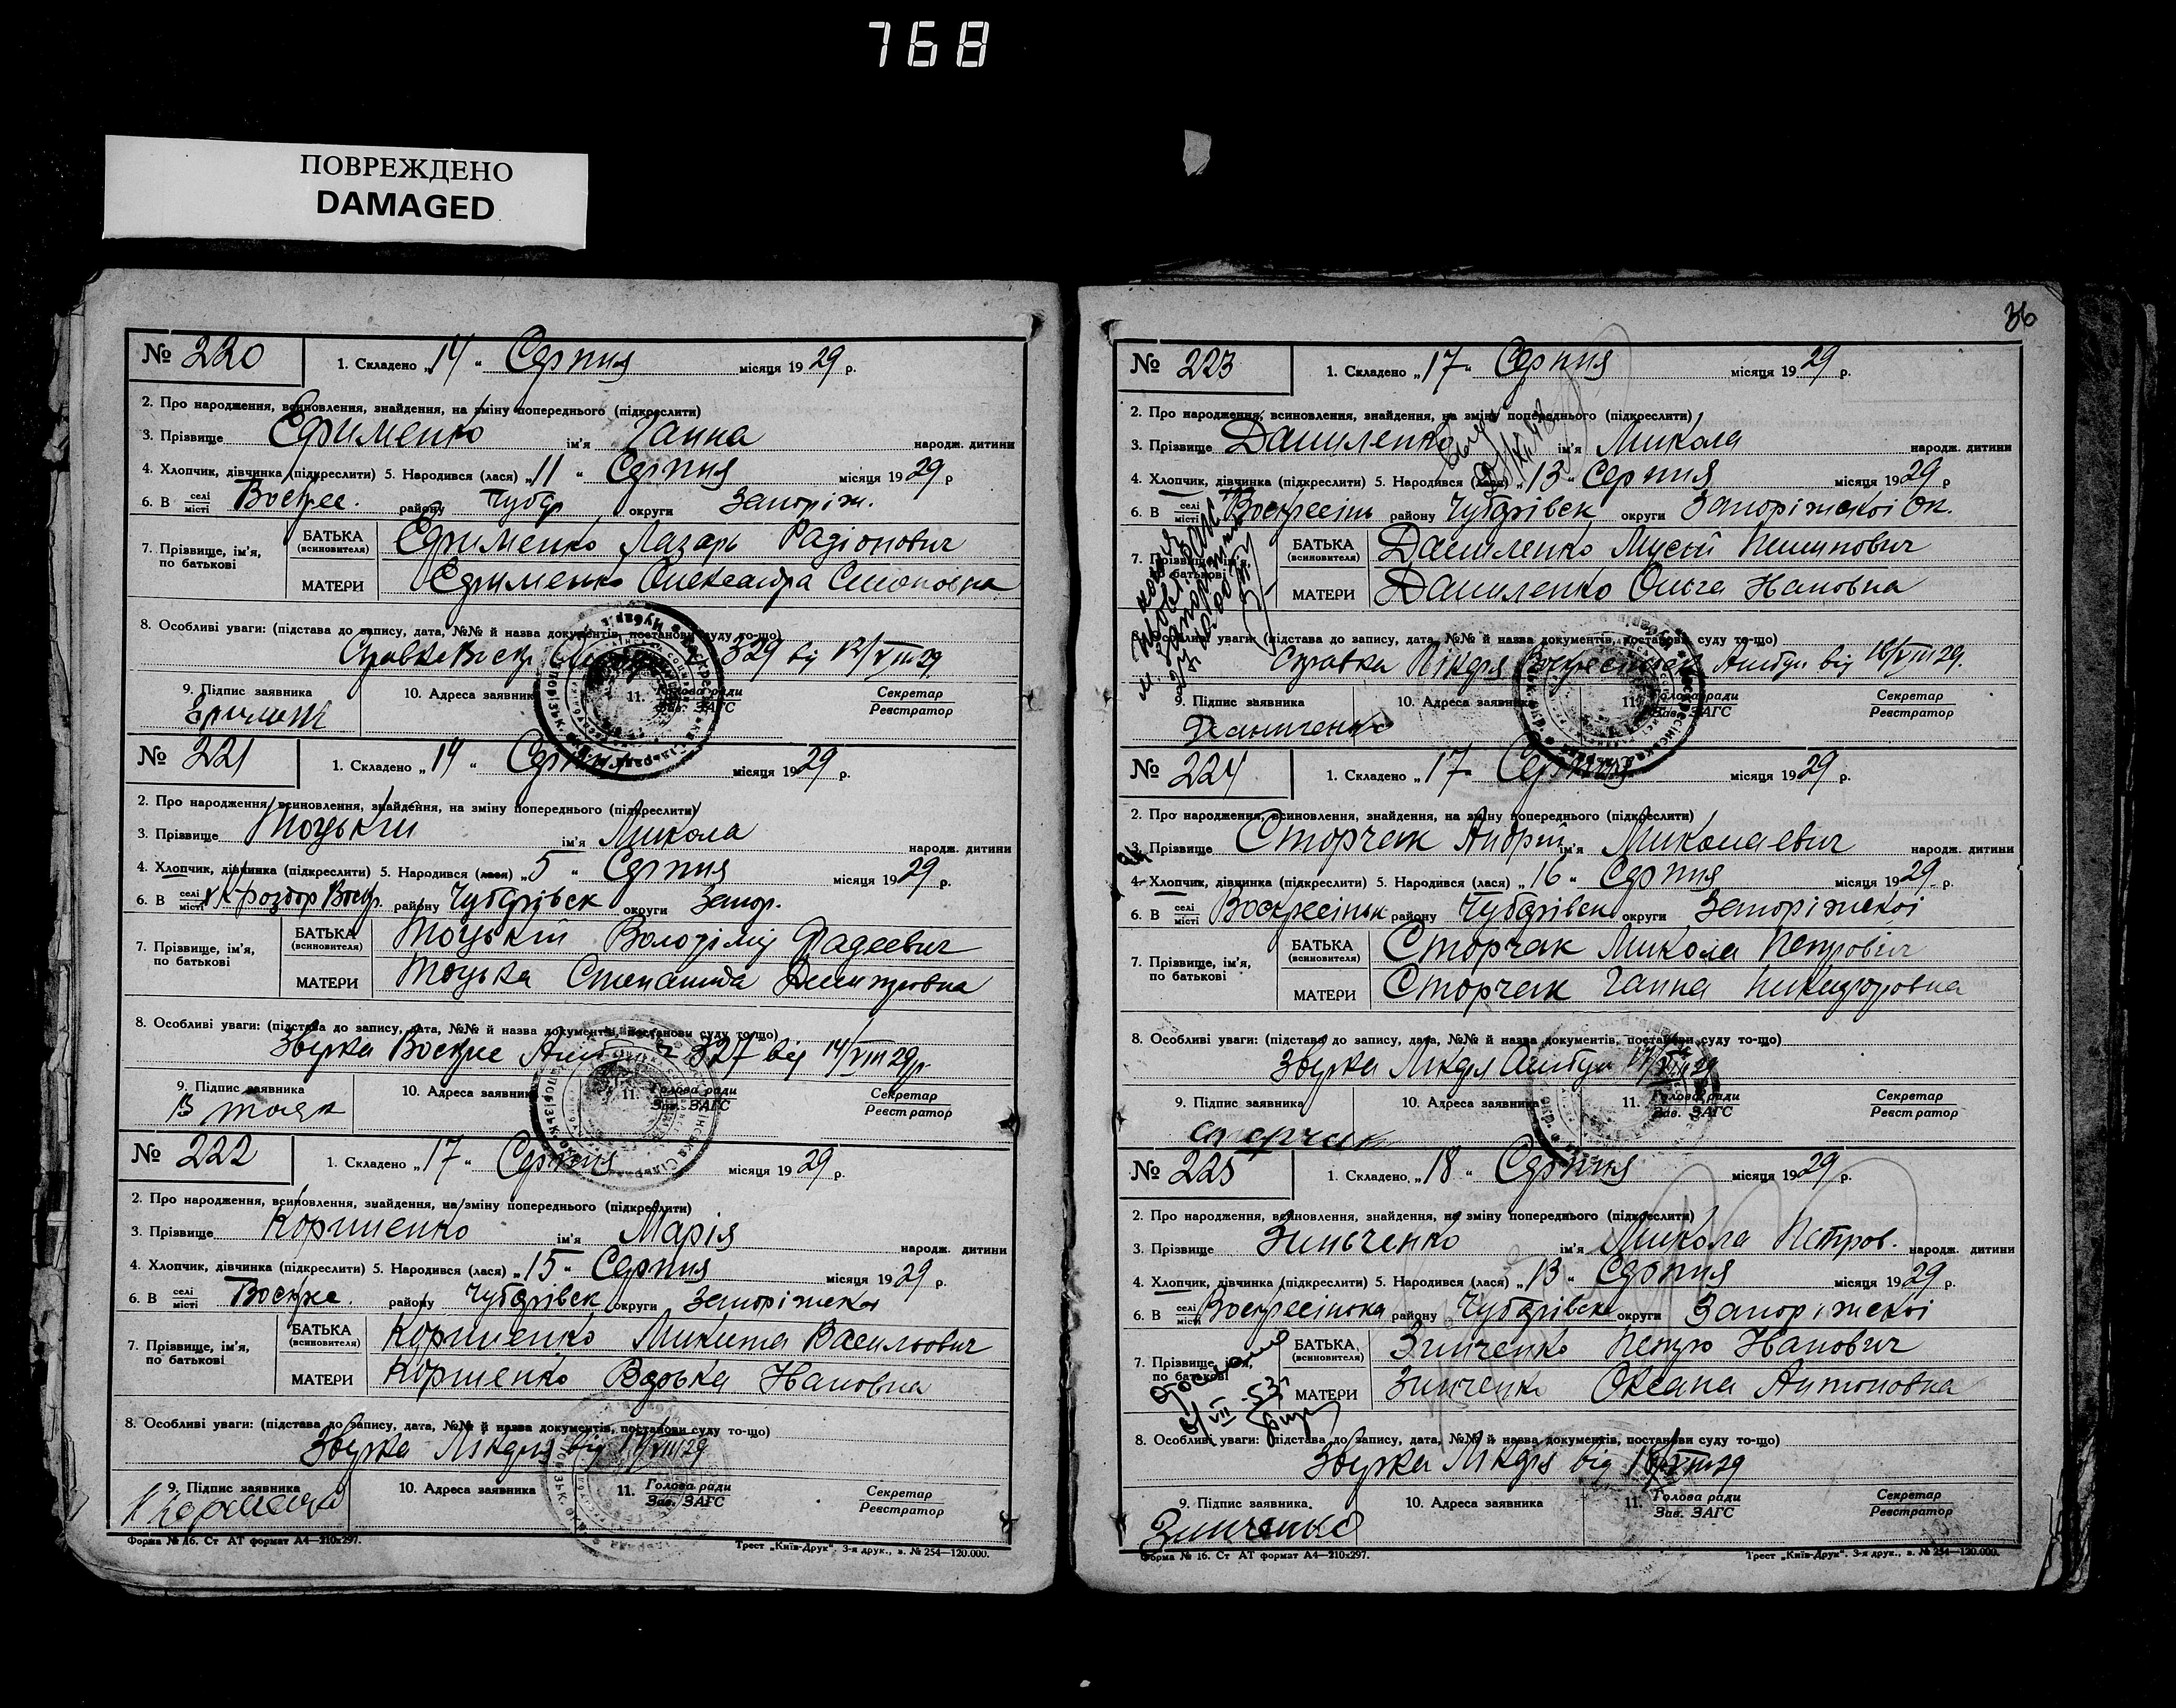 768
ПОВРЕЖДЕНО
DAMAGED
№ 220 1. Складено „14“ Серпня місяця 1929 р.
2. Про народження, всиновлення, знайдення, на зміну попереднього (підкреслити)
3. Прізвище Єфименко ім'я Ганна народж. дитини
4. Хлопчик, дівчинка (підкреслити) 5. Народився (лася) „11“ Серпня місяця 1929 р
6. В селі місті Воскрес. району Чубар округи Запоріж.
7. Прізвище, ім'я, по батькові БАТЬКА (всиновителя) Єфименко Лазарь Радіонович
МАТЕРИ Єфименко Олександра Семоновна
8. Особливі уваги: (підстава до запису, дата, №№ й назва документів, постанови суду то-що)
329 від 12/VIII 29
9. Підпис заявника 10. Адреса заявника 11. Голова ради Зав. ЗАГС Секретар Реєстратор
№ 221 1. Складено „14“ Серпня місяця 1929 р.
2. Про народження, всиновлення, знайдення, на зміну попереднього (підкреслити)
3. Прізвище Тоцький ім'я Микола народж. дитини
4. Хлопчик, дівчинка (підкреслити) 5. Народився (лася) „5“ Серпня місяця 1929 р.
6. В селі місті Воскр. району Чубарівськ округи Запор.
7. Прізвище, ім'я, по батькові БАТЬКА (всиновителя) Тоцький Володімір Фадеевич
МАТЕРИ Тоцька Степанида Дмитровна
8. Особливі уваги: (підстава до запису, дата, №№ й назва документів, постанови суду то-що)
Звірка Воскрес Амбул 327 від 14/VIII 29 р.
9. Підпис заявника 10. Адреса заявника 11. Голова ради Зав. ЗАГС Секретар Реєстратор
№ 222 1. Складено „17“ Серпня місяця 1929 р.
2. Про народження, всиновлення, знайдення, на зміну попереднього (підкреслити)
3. Прізвище Корниенко ім'я Марія народж. дитини
4. Хлопчик, дівчинка (підкреслити) 5. Народився (лася) „15“ Серпня місяця 1929 р.
6. В селі місті Воскре. району Чубарівськ округи Запоріжскої
7. Прізвище, ім'я, по батькові БАТЬКА (всиновителя) Корниенко Микита Васильович
МАТЕРИ Корниенко Варька Ивановна
8. Особливі уваги: (підстава до запису, дата, №№ й назва документів, постанови суду то-що)
Звірка Лікаря від 17/VIII 29
9. Підпис заявника 10. Адреса заявника 11. Голова ради Зав. ЗАГС Секретар Реєстратор
Форма № 16. Ст АТ формат А4—210x297. Трест „Київ-Друк“. 3-я друк., з. № 254—120.000.
36
№ 223 1. Складено „17“ Серпня місяця 1929 р.
2. Про народження, всиновлення, знайдення, на зміну попереднього (підкреслити)
3. Прізвище Даниленко ім'я Микола народж. дитини
4. Хлопчик, дівчинка (підкреслити) 5. Народився (лася) „13“ Серпня місяця 1929 р
6. В селі місті Воскресінь району Чубарівськ округи Запоріжскої ок.
7. Прізвище, ім'я, по батькові БАТЬКА (всиновителя) Даниленко Мусій Пилипович
МАТЕРИ Даниленко Ольга Ивановна
8. Особливі уваги: (підстава до запису, дата, №№ й назва документів, постанови суду то-що)
Справка Лікаря Воскресінськ Амбул від 16/VIII 29.
9. Підпис заявника 10. Адреса заявника 11. Голова ради Зав. ЗАГС Секретар Реєстратор
№ 224 1. Складено „17“ Серпня місяця 1929 р.
2. Про народження, всиновлення, знайдення, на зміну попереднього (підкреслити)
3. Прізвище Сторчак Андрій ім'я Миколаевич народж. дитини
4. Хлопчик, дівчинка (підкреслити) 5. Народився (лася) „16“ Серпня місяця 1929 р.
6. В селі місті Воскресіньк району Чубарівськ округи Запоріжскої
7. Прізвище, ім'я, по батькові БАТЬКА (всиновителя) Сторчак Микола Петровіч
МАТЕРИ Сторчак Ганна Никифоровна
8. Особливі уваги: (підстава до запису, дата, №№ й назва документів, постанови суду то-що)
Звірка Лікаря Амбул 17/VIII 29
9. Підпис заявника 10. Адреса заявника 11. Голова ради Зав. ЗАГС Секретар Реєстратор
Сторчак
№ 225 1. Складено „18“ Серпня місяця 1929 р.
2. Про народження, всиновлення, знайдення, на зміну попереднього (підкреслити)
3. Прізвище Зиньченко ім'я Микола Петров. народж. дитини
4. Хлопчик, дівчинка (підкреслити) 5. Народився (лася) „13“ Серпня місяця 1929 р.
6. В селі місті Воскресінська району Чубарівськ округи Запоріжскої
7. Прізвище, ім'я, по батькові БАТЬКА (всиновителя) Зинченко Петро Иванович
МАТЕРИ Зинченко Оксана Антоновна
8. Особливі уваги: (підстава до запису, дата, №№ й назва документів, постанови суду то-що)
Звірка Лікаря від
9. Підпис заявника 10. Адреса заявника 11. Голова ради Зав. ЗАГС Секретар Реєстратор
Зинченко
Форма № 16. Ст АТ формат А4—210x297. Трест „Київ-Друк“. 3-я друк., з. № 254—120.000.